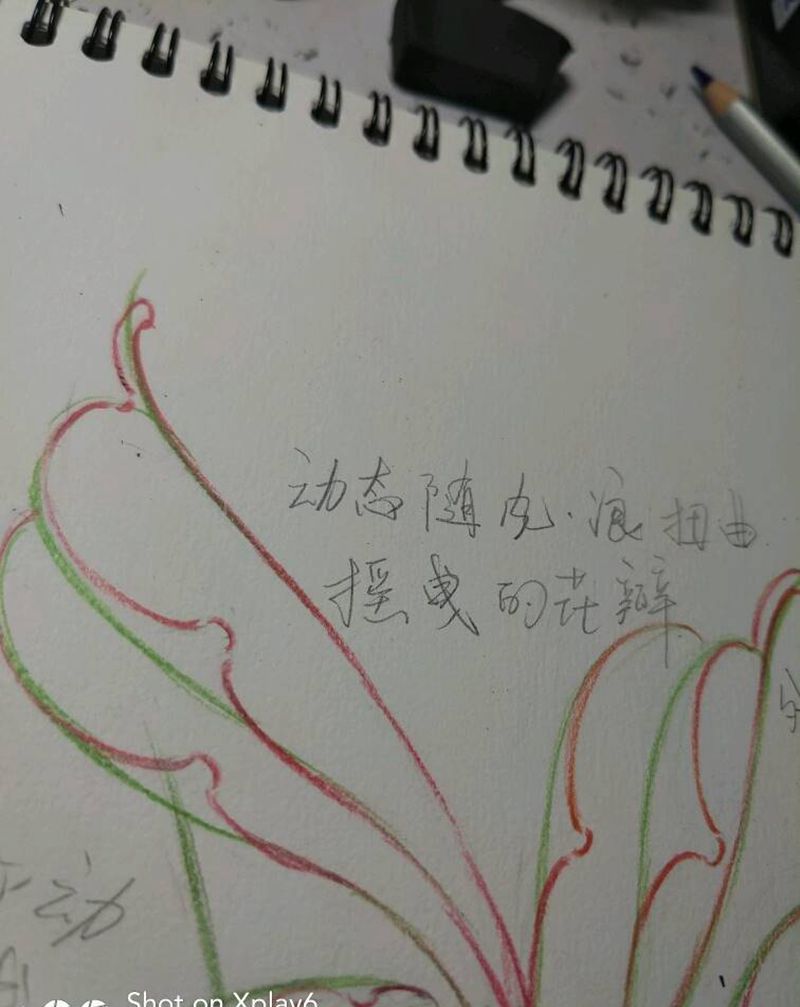 动态随风.浪扭曲
摇曳的花瓣
动
Shot on Xplay6